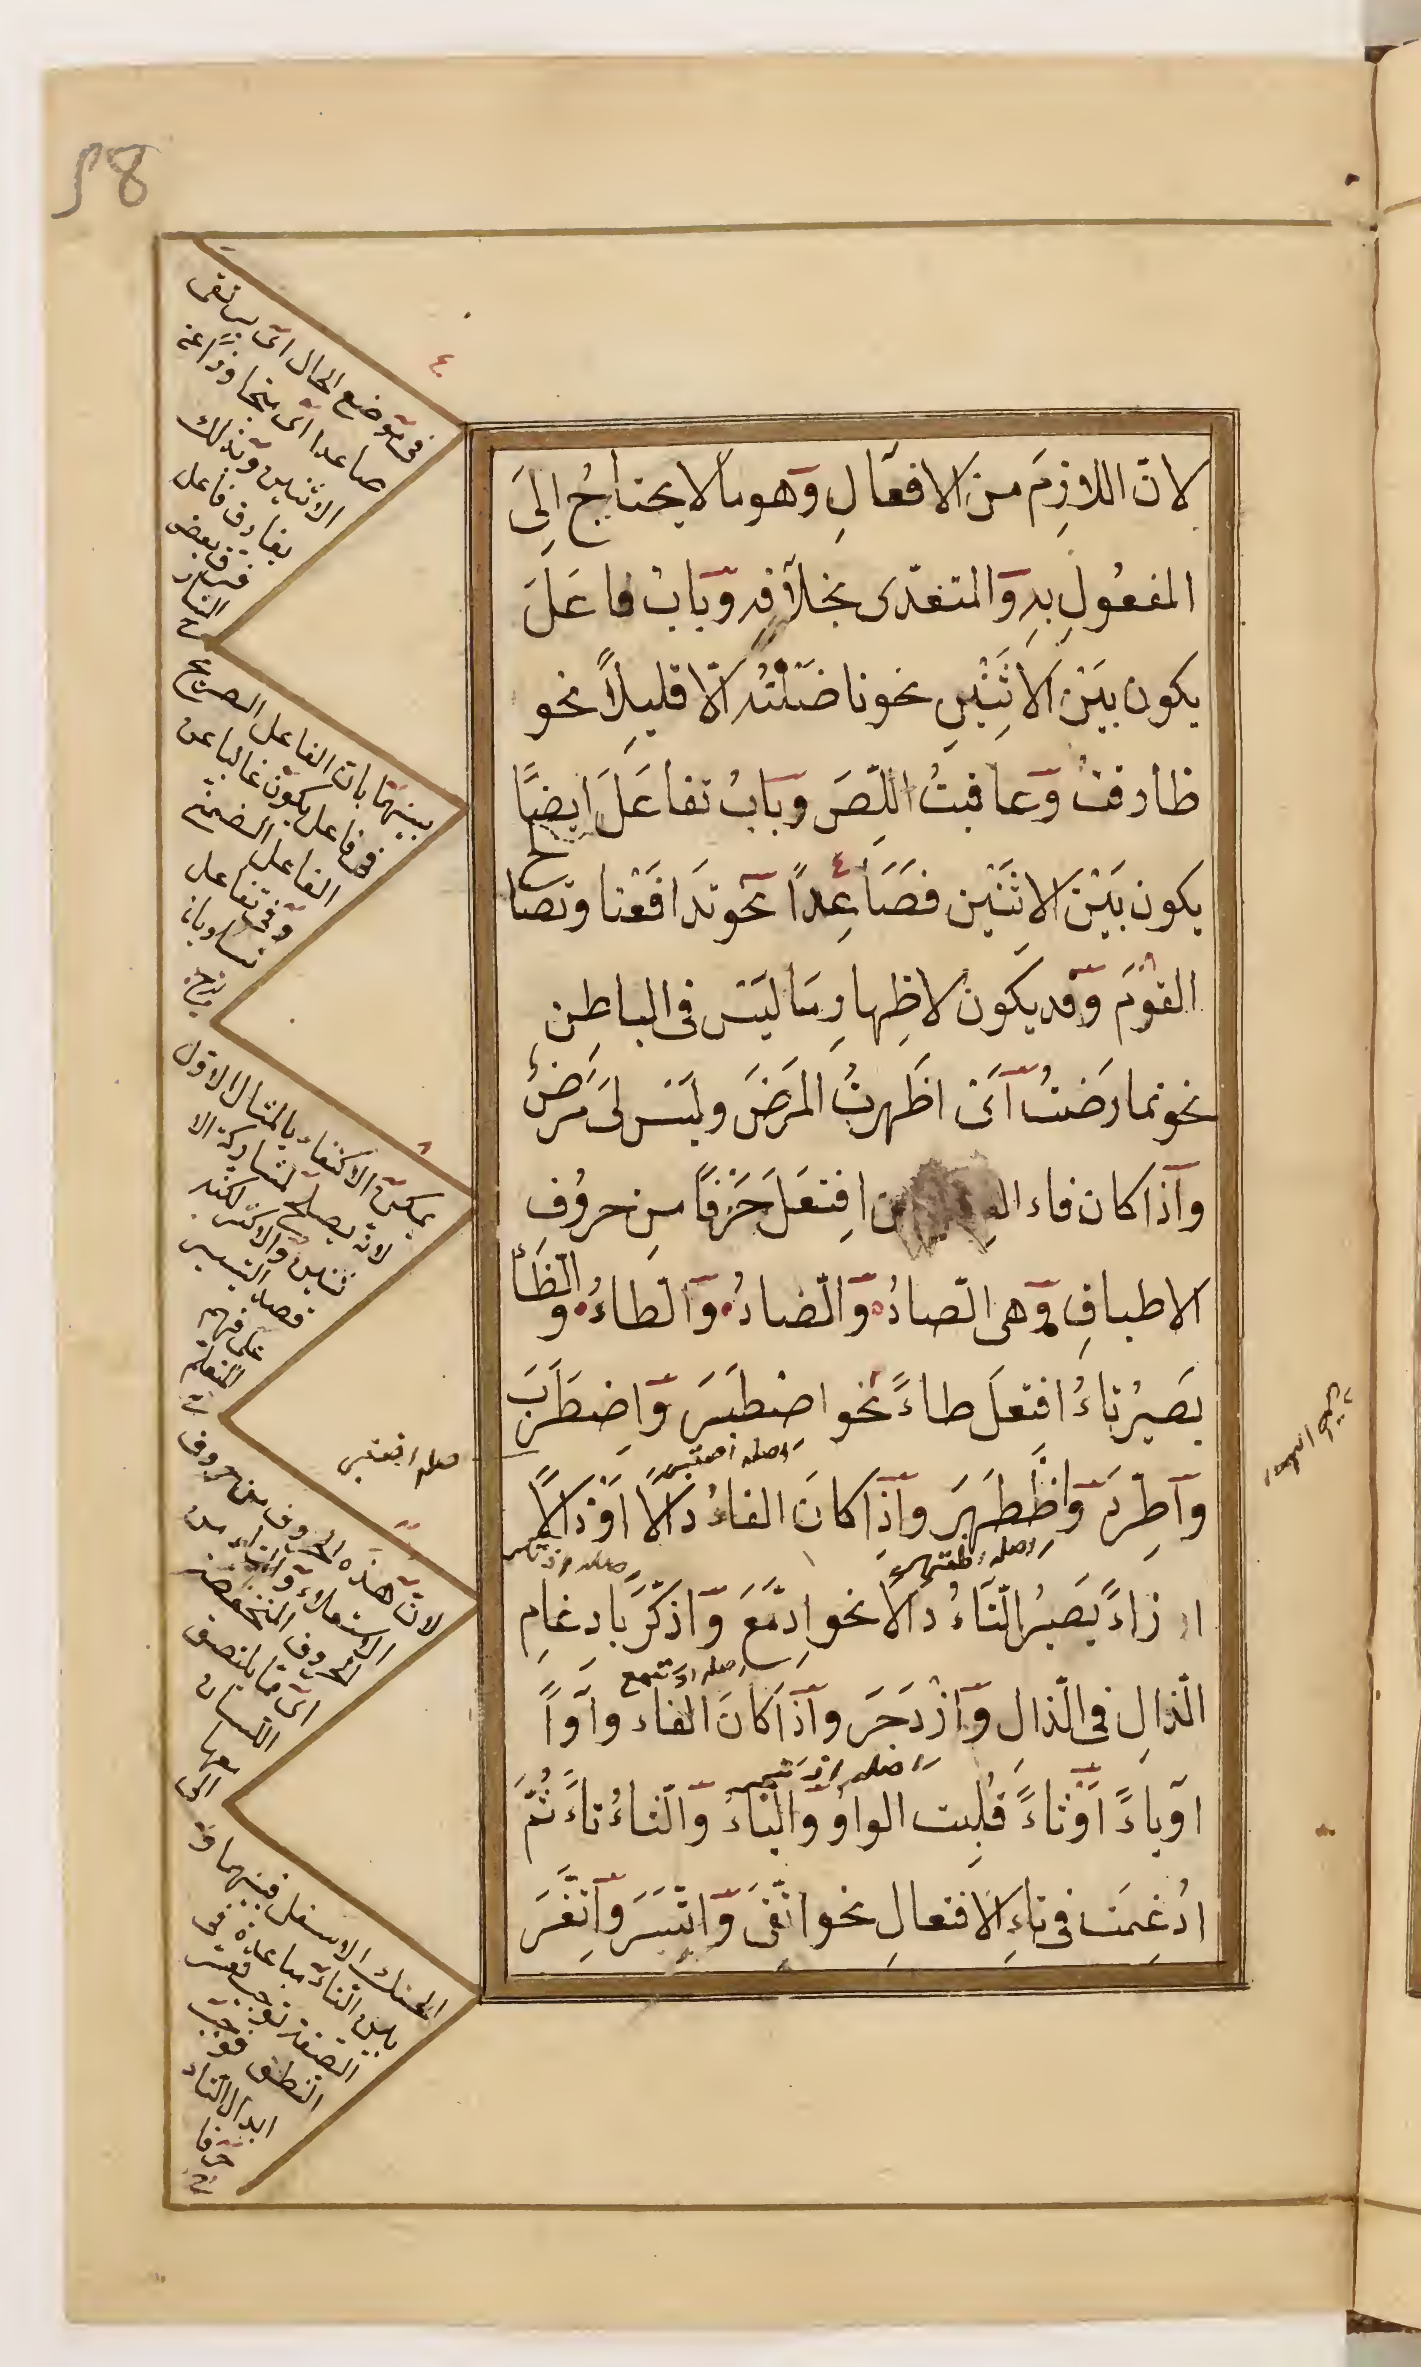 58
لانّ اللازِمَ من الافعَالِ وهو ما لا يحتاجُ الى
المفعُولِ بهِ والمتعدّى بخلافِه وبَابُ فاعَلَ
يكون بَيْنَ الاثنَيْنِ نحو ناضَلْتُه الّا قليلاً نحو
طارقتُ وعاقبتُ اللّصَ وبابُ تفاعَلَ ايضًا
يكون بَيْنَ الاثنَيْن فصَاعِداً نحو تدَافَعْنا وتصالح
القوْمَ وقد يكون لاظِهارِ ما ليسَ فى الباطِنِ
نحو تمارَضتُ اَىْ اظهرتُ المرَضَ وليسَ لى مَرَضٌ
واذا كان فاء من افتعَلَ حَرْفًا من حروُفِ
الاطباقِ وهى الصّادُ والضّادُ والطّاءُ والظّاءُ
يصيرُ تاءُ افتعلَ طاءً نحو اصْطبَرَ واضطرَبَ
واطّردَ واظْطهَرَ واذا كانَ الفاءُ دالاً اَوْ ذالاً
او زاءً يَصيرُ التّاءُ دالاً نحو ادّمَعَ واذّكّرَ بادغامِ
الذّالِ فى الذّالِ وازْدَجَرَ واذا كانَ الفاء واواً
او ياءً اَوْ ثاءً قُلِبت الواوُ والياءُ والثاءُ تاءً ثُمّ
ادْغِمَت فى تاءِ الافتعالِ نحو اتّقى واتّسَرَ واتّغَرَ
فى موضع الحال اى يرتقى
صاعدا اى متجاوزا عن
الاثنين وبذلك
يفارق فاعل
فرق بعض
بينهما بان الفاعل الصريح
فى فاعل يكون غالبا عن
الفاعل الضمنى
وفى تفاعل
تساويان
يمكن الاكتفاء بالمثال الاول
لانه يصلح لمشاركة الا
ثنين والاكثر لكنه
قصد التيسير
على فهم
المتعلم
لان هذه الحروف من حروف
الاستعلاء والتاء من
الحروف المنخفضة
اى ما يلتصق
اللسان
معها
الى
الحنك الاسفل فبينهما و
بين التاء مباعدة فى
الصفة توجب تعسر
النطق فوجب
ابدال التاء
حرفا
اصله اظتهر